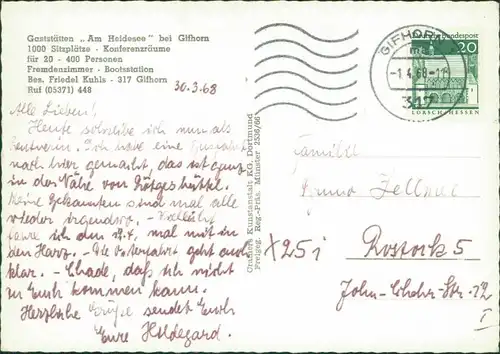 Gaststätten „Am Heidesee" bei Gifhorn
1000 Sitzplätze - Konferenzräume
für 20 - 400 Personen
Fremdenzimmer - Bootsstation
Bes. Friedel Kuhls - 317 Gifhorn
Ruf (05371) 448
30.3.68
Alle Lieben!
Heute schreibe ich nun als
Rentnerin. Ich habe eine
nach hier gemacht, das ist ganz
in der Nähe von Rötgesbüttel.
Meine Bekannten sind mal alle
wieder irgendwo. - Vielleicht
fahre ich den mal mit in
den Harz. - Die geht auch
klar. - Schade, daß ich nicht
zu Euch kommen kann.
Herzliche Grüße sendet Euch
Eure Hildegard.
Cramers Kunstanstalt KG. Dortmund
Freigeg. Reg.-Präs. Münster 2536/66
GIFHORN
-1.4.68-1
317
Deutsche Bundespost
20
LORSCH · HESSEN
Familie
Bruno Zellmer
X25i
Rostock 5
John-Schehr-Str. 12
I